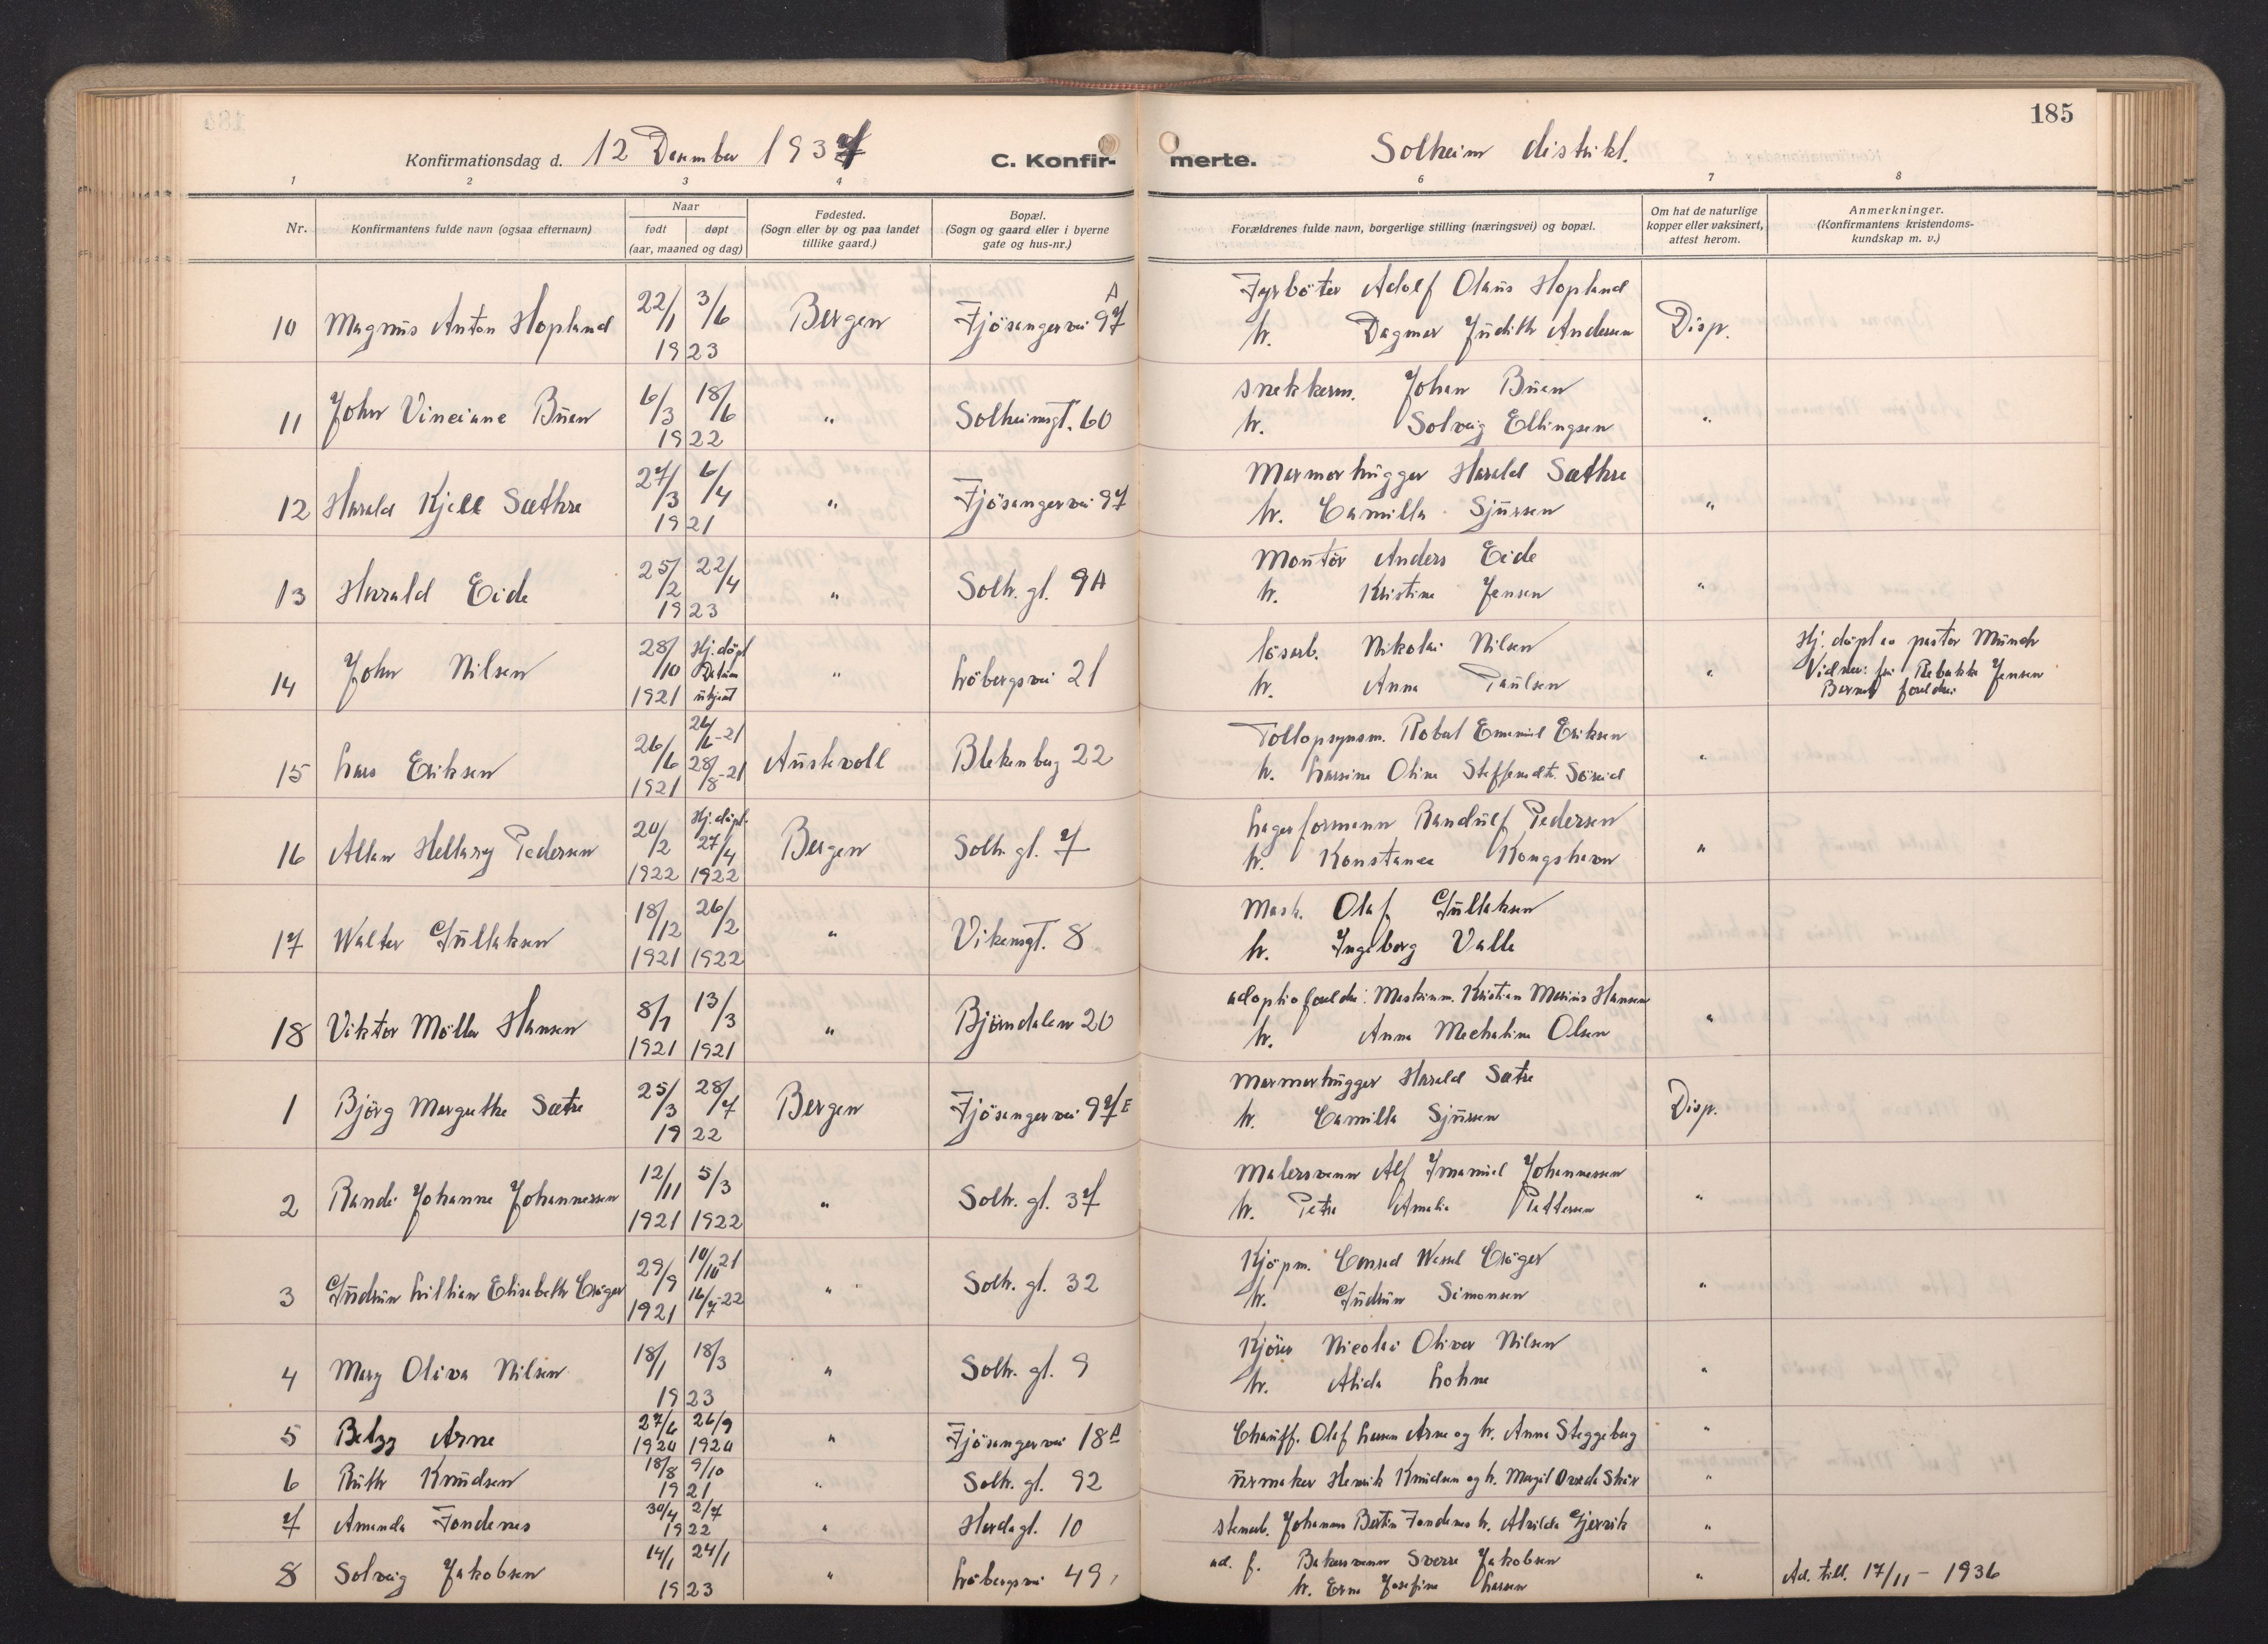 185
Konfirmationsdag d. 12 Desember 1937
C. Konfir- merte.
Solheim distrikt.
1 2 3 4 6 7 8
Nr.
Konfirmantens fulde navn (ogsaa efternavn)
Naar
født døpt
(aar, maaned og dag)
Fødested.
(Sogn eller by og paa landet
tillike gaard.)
Bopæl.
(Sogn og gaard eller i byerne
gate og hus-nr.)
Forældrenes fulde navn, borgerlige stilling (næringsvei) og bopæl.
Om hat de naturlige
kopper eller vaksinert,
attest herom.
Anmerkninger.
(Konfirmantens kristendoms-
kundskap m. v.)
10 Magnus Anton Hopland 22/1 3/6 1923 Bergen Fjösangervei 97 A
Fyrböter Adolf Olaus Hopland
h. Dagmar Judith Andersen Disp.
11 John Vinciane Buen 6/3 18/6 1922 " Solheimsgt. 60
snekkerm. Johan Buen
h. Solveig Ellingsen "
12 Harald Kjell Sæthre 27/3 6/4 1921 " Fjösangervei 97
Marmorhugger Harald Sæthre
h. Camilla Sjursen "
13 Harald Eide 25/2 22/4 1923 " Solh. gt. 9A
Montör Anders Eide
h. Kristine Jensen "
14 John Nilsen 28/10 1921 Hj. döpt Datum ukjent " Löbergsvei 21
lösarb. Nikolai Nilsen
h. Anna Paulsen "
Hj. döpt av pastor Münch
Vidner: frk Rebekka Jensen
Barnets foreldre
15 Lars Eriksen 26/6 1921 26/6-21 28/8-21 Austevoll Blekenberg 22
Tollopsynsm. Robert Emanuel Eriksen
h. Larsine Oline Steffensdt. "
16 Allan Hellary Pedersen 20/2 1922 Hj. döpt. 27/4 1922 Bergen Solh. gt. 7
Lagerformann Randulf Pedersen
h. Konstance Kongshavn "
17 Walter Gullaksen 18/12 1921 26/2 1922 " Vikensgt. 8
Mask. Olaf Gullaksen
h. Ingeborg Valle
18 Viktor Möller Hansen 8/1 1921 13/3 1921 " Björndalen 20
adoptivforeldre: Maskinm. Kristian Marius Hansen
h. Anna Mechaline Olsen "
1 Björg Margrethe Sætre 25/3 28/7 1922 Bergen Fjösangervei 97 E
Marmorhugger Harald Sætre
h. Camilla Sjursen Disp.
2 Randi Johanne Johannessen 12/11 1921 5/3 1922 " Solh. gt. 37
Malersvenn Alf Imanuel Johannessen
h. Petra Amalie Pettersen "
3 Gudrun Lillian Elisabeth Cröger 29/9 1921 10/10 21 16/7-22 " Solh. gt. 32
Kjöpm. Conrad Wessel Cröger
h. Gudrun Simonsen "
4 Mary Oliva Nilsen 18/1 18/3 1923 " Solh. gt. 9
Kjörer Nicolai Oliver Nilsen
h. Alida Lohne "
5 Betzy Arne 27/6 1920 26/9 1920 " Fjösangervei 18 A
Chauff. Olaf Larsen Arne og h. Anna Steggeberg "
6 Ruth Knudsen 18/8 9/10 1921 " Solh. gt. 92
Urmaker Henrik Knudsen og h. Margit "
7 Amanda Fondenes 30/4 2/7 1922 " Hordagt. 10
stenarb. Johannes Bertin Fondenes h. Alvilda Gjervik "
8 Solveig Jakobsen 14/1 24/1 1923 " Löbergsvei 49
ad. f. Bakersvenn Sverre Jakobsen
h. Erna Josefine Larsen "
Ad. till. 17/11 - 1936